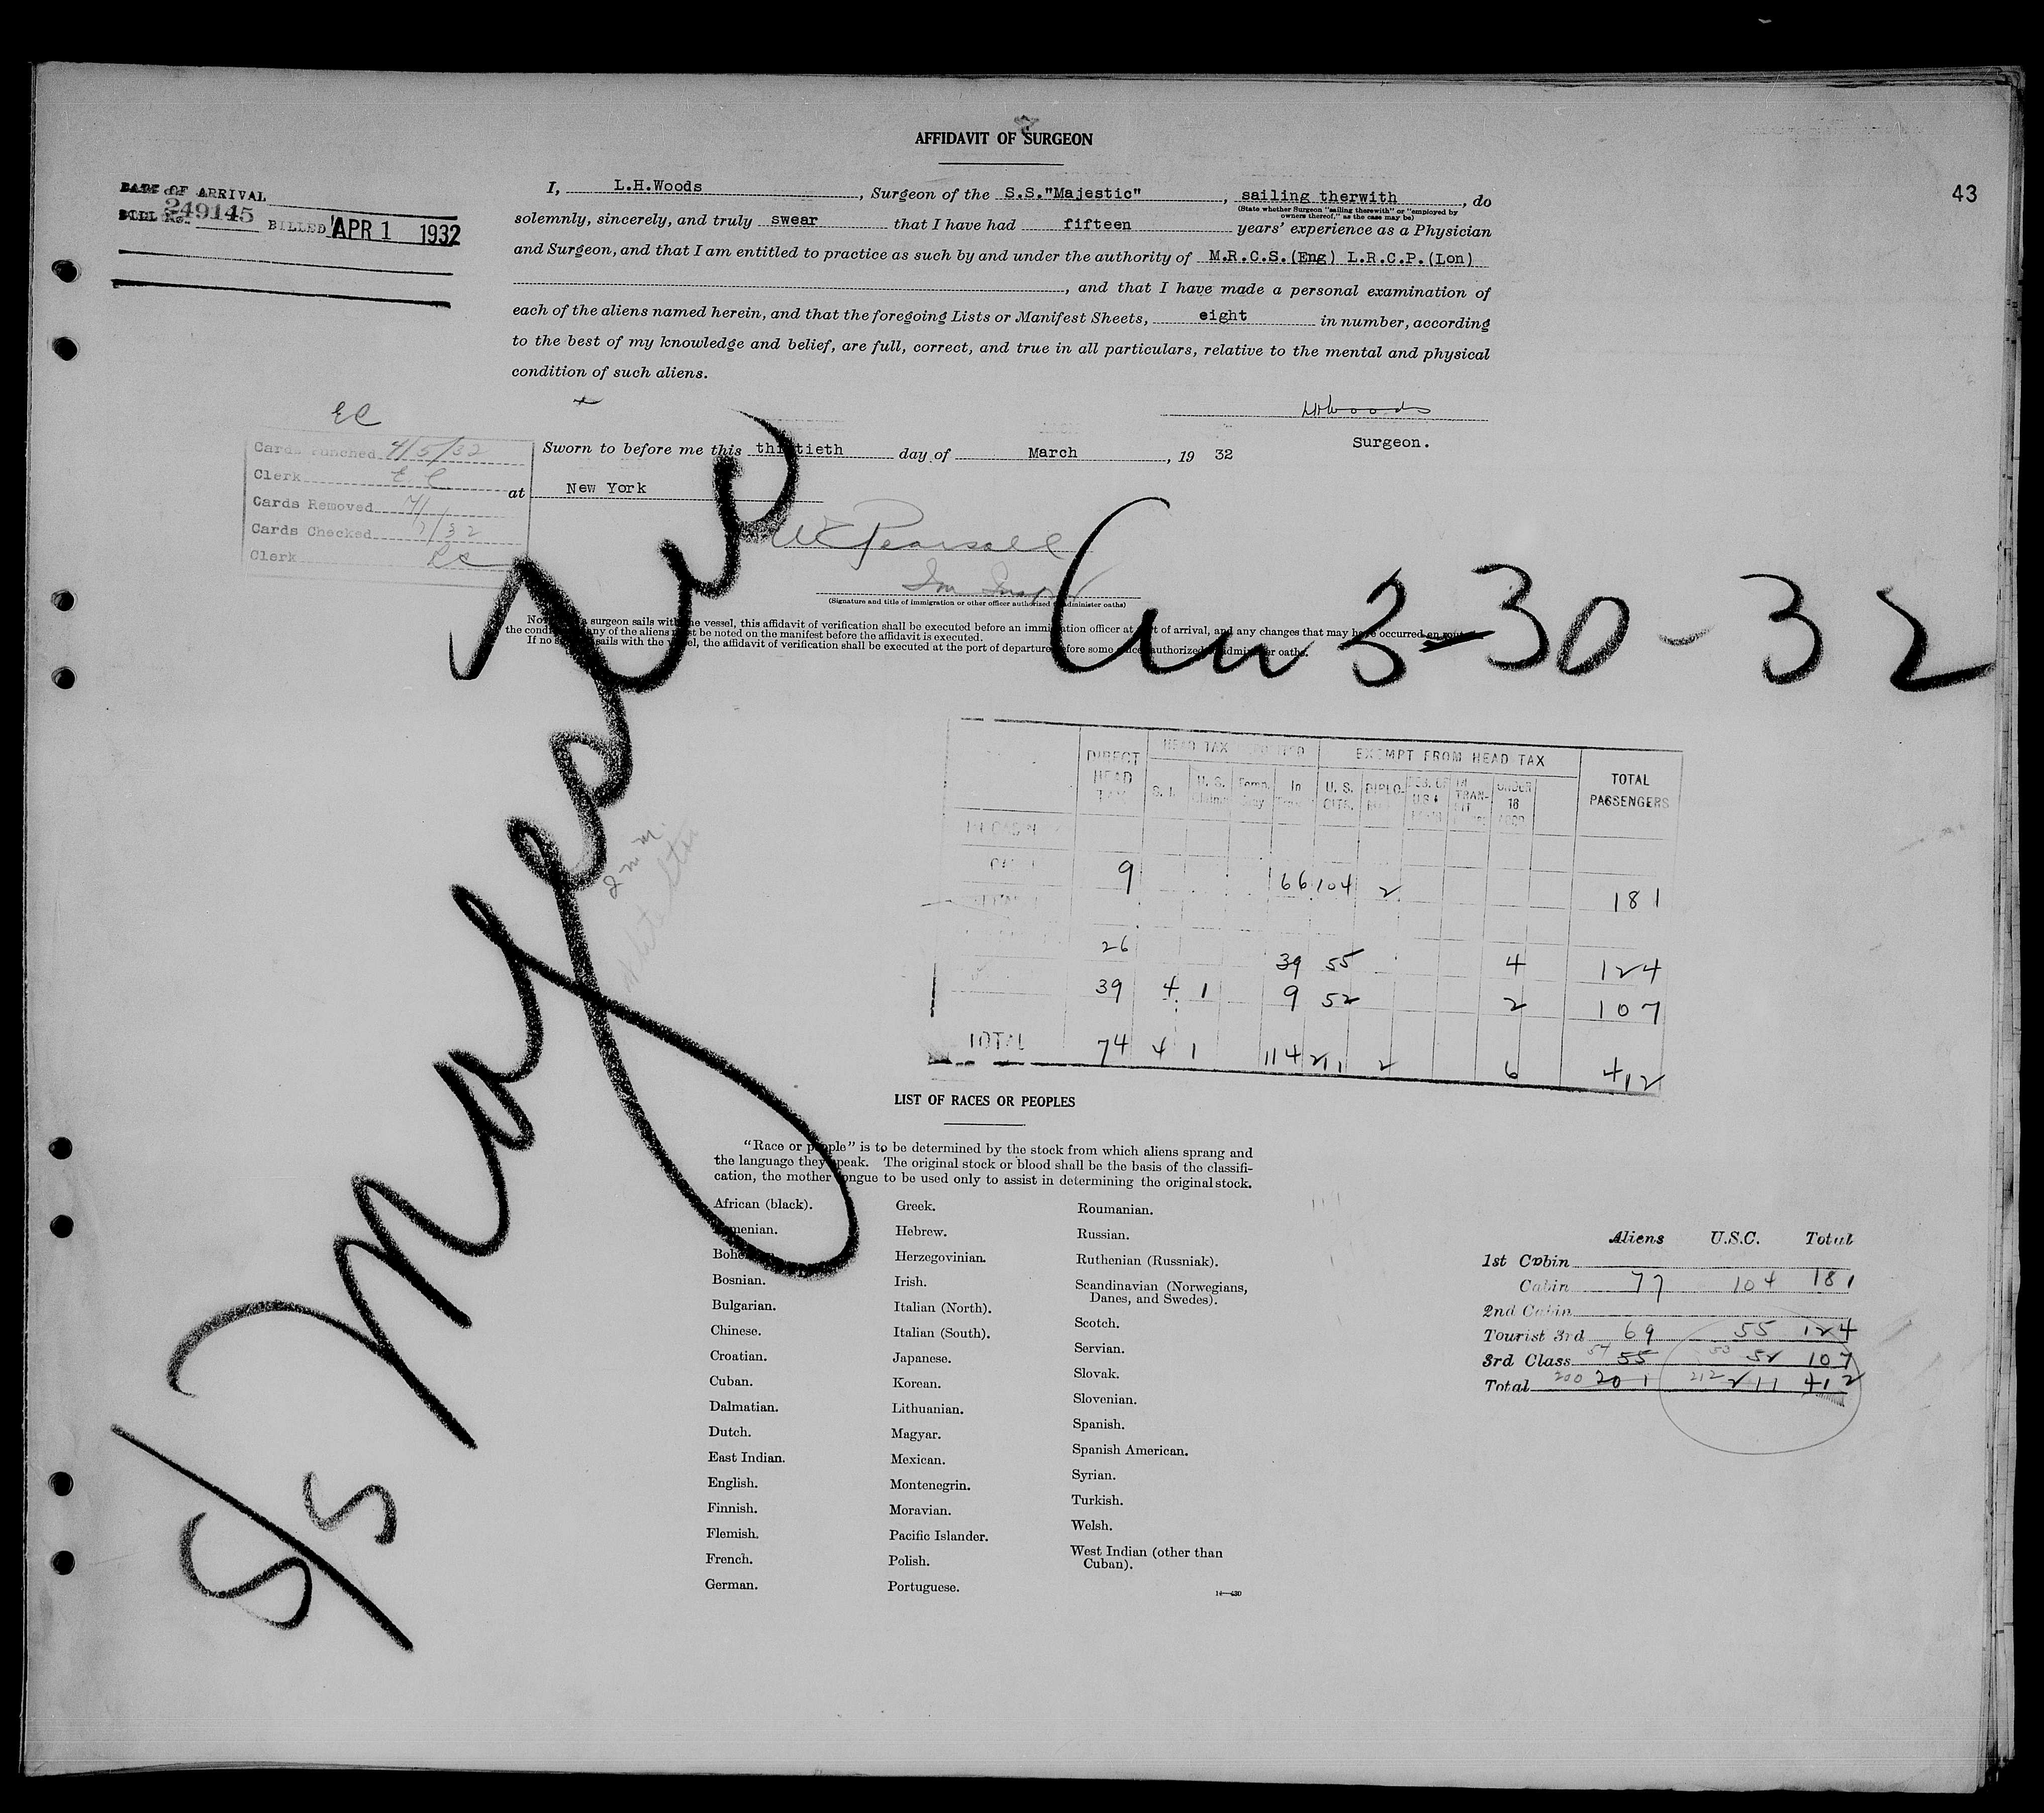 AFFIDAVIT OF SURGEON
43
DATE OF ARRIVAL
249145 BILLED APR 1 1932
I, L.H.Woods, Surgeon of the S.S."Majestic", sailing therwith, do
(State whether Surgeon "sailing therewith" or "employed by
owners thereof," as the case may be)
solemnly, sincerely, and truly swear that I have had fifteen years' experience as a Physician
and Surgeon, and that I am entitled to practice as such by and under the authority of M.R.C.S.(Eng) L.R.C.P.(Lon)
, and that I have made a personal examination of
each of the aliens named herein, and that the foregoing Lists or Manifest Sheets, eight in number, according
to the best of my knowledge and belief, are full, correct, and true in all particulars, relative to the mental and physical
condition of such aliens.
LHWoods
Surgeon.
EC
Cards Punched 4/5/32
Clerk E C
Cards Removed
Cards Checked
Clerk
Sworn to before me this thirtieth day of March, 19 32
at New York
WC Pearsall
Im Insp
(Signature and title of immigration or other officer authorized to administer oaths)
surgeon sails with the vessel, this affidavit of verification shall be executed before an immigration officer at port of arrival, and any changes that may have occurred en route
the condition any of the aliens must be noted on the manifest before the affidavit is executed.
If no surgeon sails with the vessel, the affidavit of verification shall be executed at the port of departure before some officer authorized to administer oaths.
S/S Majestic
3-30-32
DIRECT HEAD TAX
HEAD TAX
EXEMPT FROM HEAD TAX
TOTAL PASSENGERS
S. I. U. S. In U. S. CITS. DIPLO. IN TRAN- SIT UNDER 16
9 66 104 2 181
26 39 55 4 124
39 4 1 9 52 2 107
TOTAL 74 4 1 114 211 2 6 412
LIST OF RACES OR PEOPLES
"Race or people" is to be determined by the stock from which aliens sprang and
the language they speak. The original stock or blood shall be the basis of the classifi-
cation, the mother tongue to be used only to assist in determining the original stock.
African (black).
Armenian.
Bohemian.
Bosnian.
Bulgarian.
Chinese.
Croatian.
Cuban.
Dalmatian.
Dutch.
East Indian.
English.
Finnish.
Flemish.
French.
German.
Greek.
Hebrew.
Herzegovinian.
Irish.
Italian (North).
Italian (South).
Japanese.
Korean.
Lithuanian.
Magyar.
Mexican.
Montenegrin.
Moravian.
Pacific Islander.
Polish.
Portuguese.
Roumanian.
Russian.
Ruthenian (Russniak).
Scandinavian (Norwegians,
Danes, and Swedes).
Scotch.
Servian.
Slovak.
Slovenian.
Spanish.
Spanish American.
Syrian.
Turkish.
Welsh.
West Indian (other than
Cuban).
Aliens U.S.C. Total
1st Cabin
Cabin 77 104 181
2nd Cabin
Tourist 3rd 69 55 124
3rd Class 54 55 53 52 107
Total 200 201 212 211 412